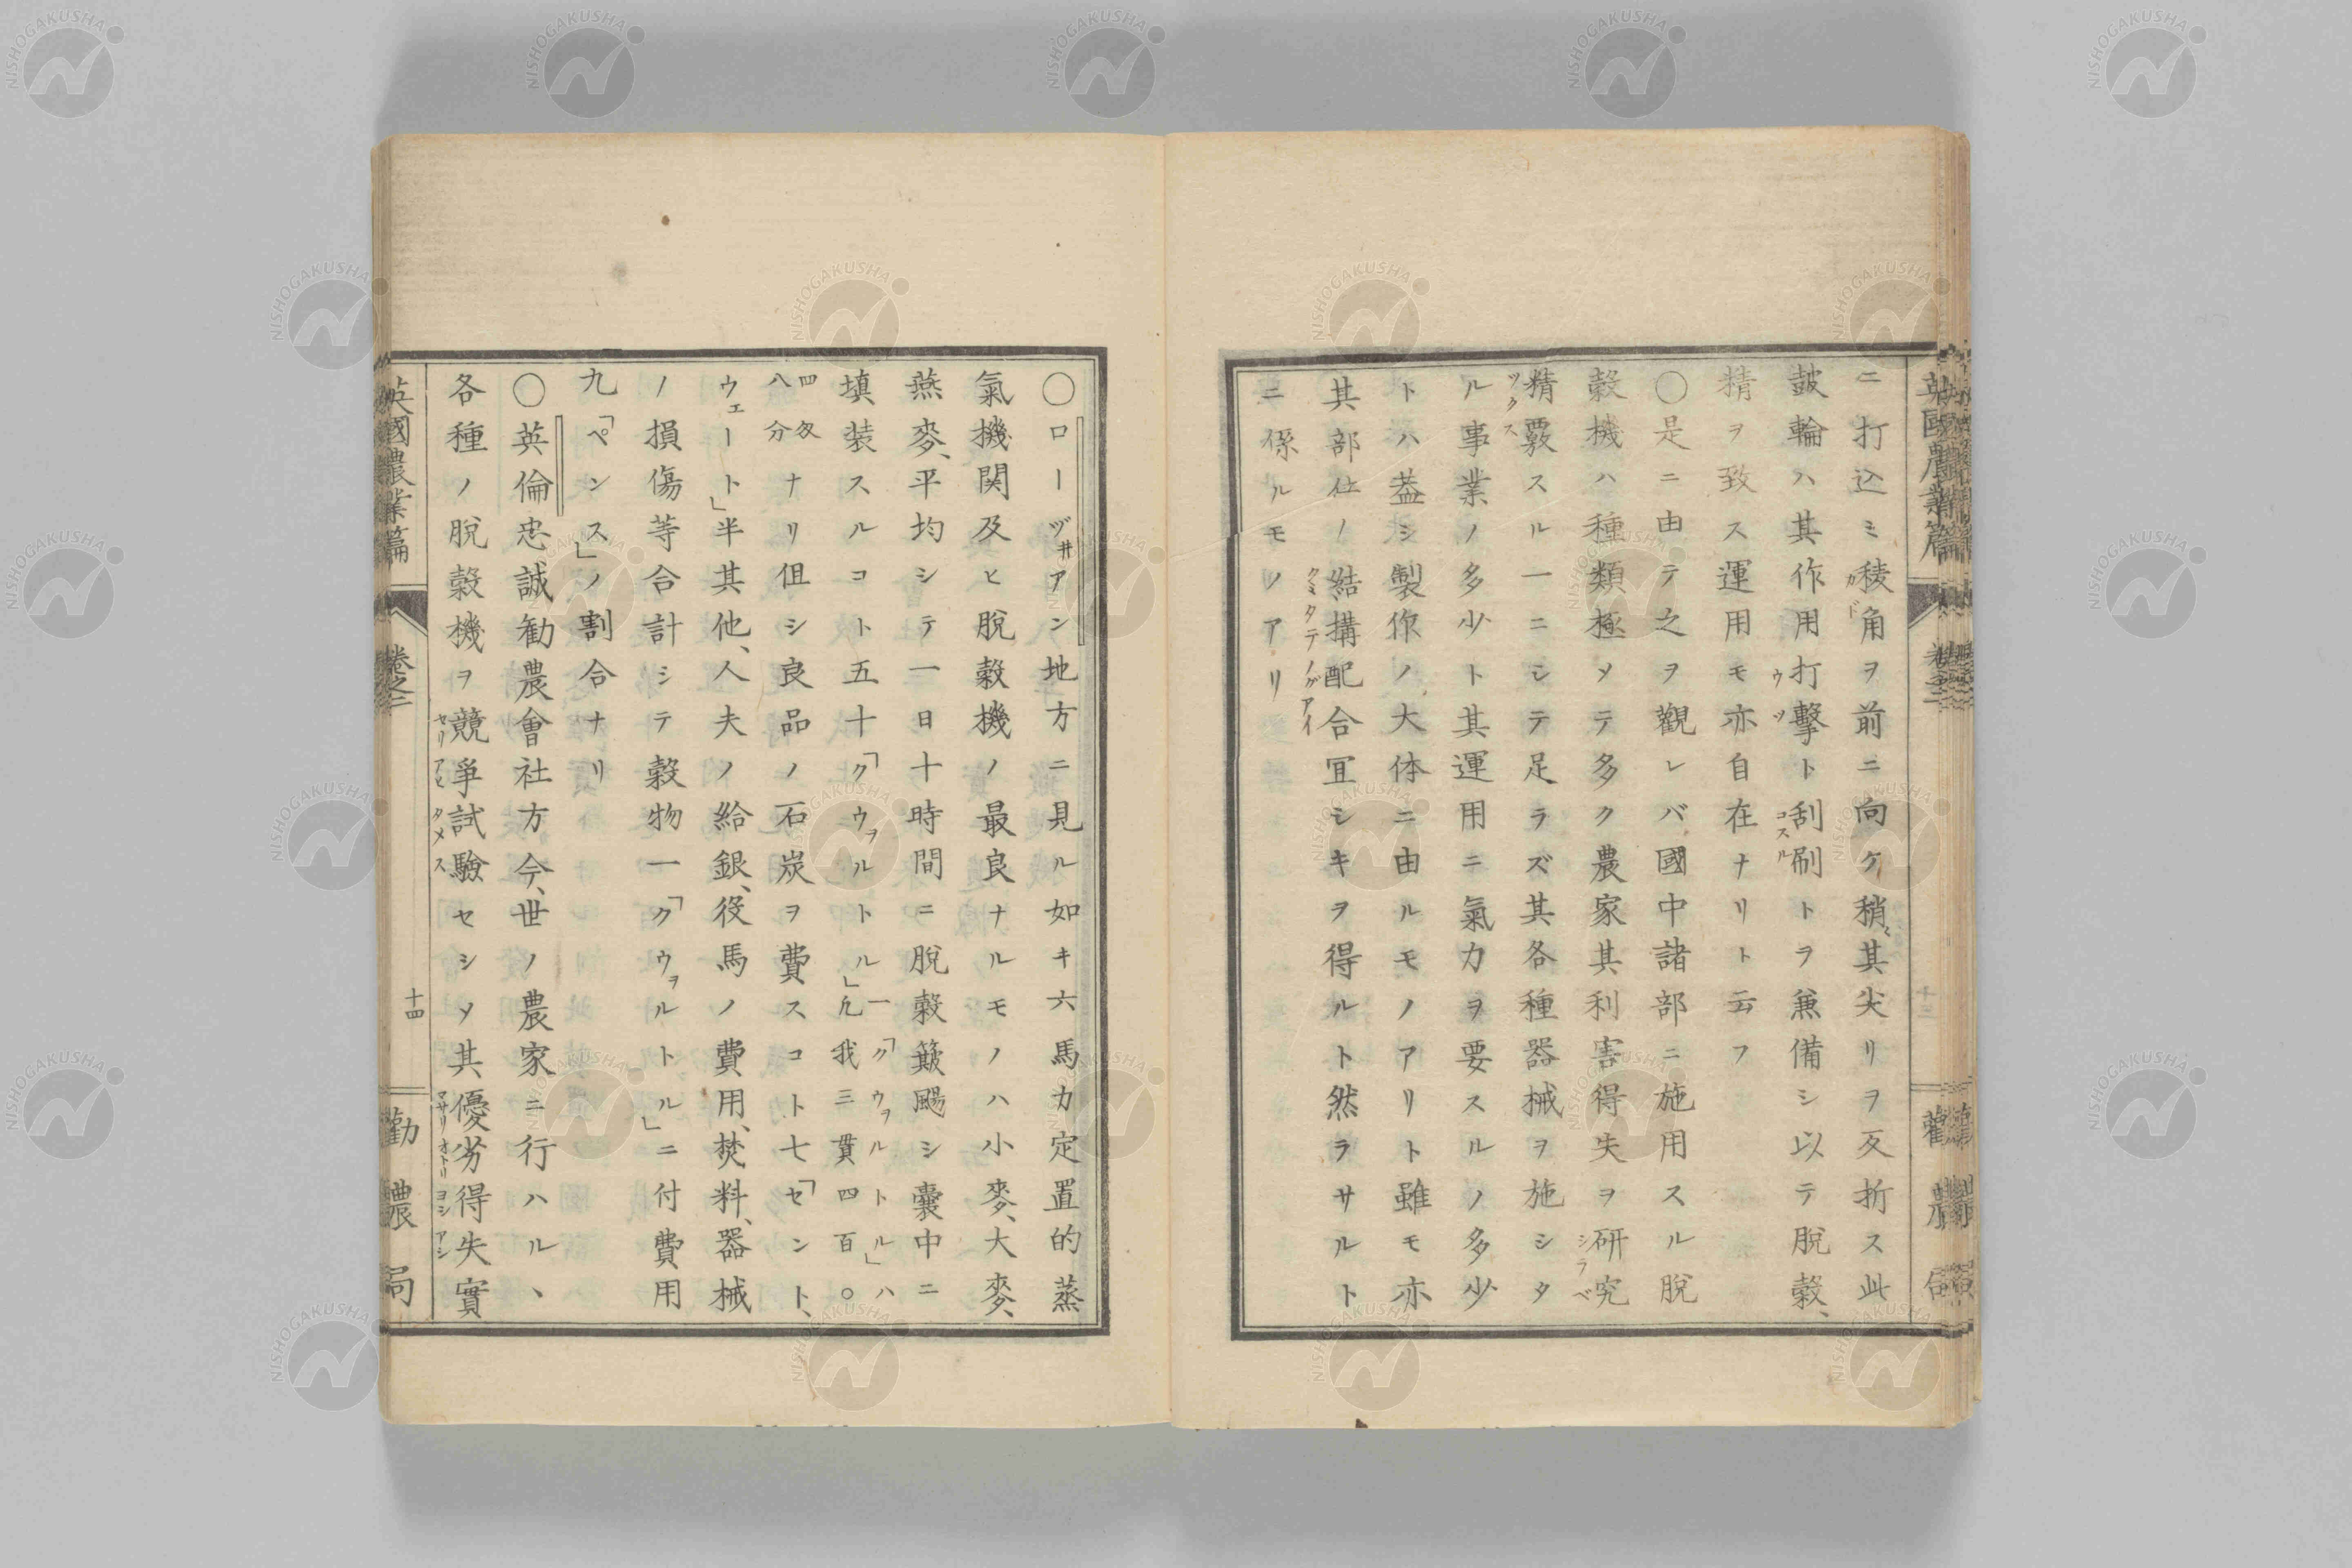 ニ打込ミ稜角ヲ前ニ向ケ稍々其尖リヲ反折ス此
カド
鼓輪ハ其作用打擊ト刮刷トヲ兼備シ以テ脫穀、
ウツ
コスル
精ヲ致ス運用モ亦自在ナリト云フ
〇是ニ由テ之ヲ觀レバ國中諸部ニ施用スル脫
穀機ハ種類極メテ多ク農家其利害得失ヲ研究
シラベ
精覈スル一ニシテ足ラズ其各種器械ヲ施シタ
ツクス
ル事業ノ多少ト其運用ニ氣力ヲ要スルノ多少
トハ葢シ製作ノ大体ニ由ルモノアリト雖モ亦
其部位ノ結搆配合冝シキヲ得ルト然ラサルト
クミタテノグアイ
ニ係ルモノアリ
〇ローヅヰアン地方ニ見ル如キ六馬力定置的蒸
氣機関及ヒ脫穀機ノ最良ナルモノハ小麥、大麥、
燕麥、平均シテ一日十時間ニ脫穀簸颺シ囊中ニ
填装スルコト五十「クウヲルトル」一「クウヲルトル」ハ
凢我三貫四百〇
四匁
八分ナリ但シ良品ノ石炭ヲ費スコト七「セント、
ウェート」半其他、人夫ノ給銀、役馬ノ費用、焚料、器械
ノ損傷等合計シテ穀物一「クウヲルトル」ニ付費用
九「ペンス」ノ割合ナリ
〇英倫忠誠勧農會社方今、世ノ農家ニ行ハル、
各種ノ脫穀機ヲ競爭試驗セシメ其優劣得失實
セリアヒ タメス
マサリオトリヨシアシ
英國農業篇 卷之二 十四 勸農局